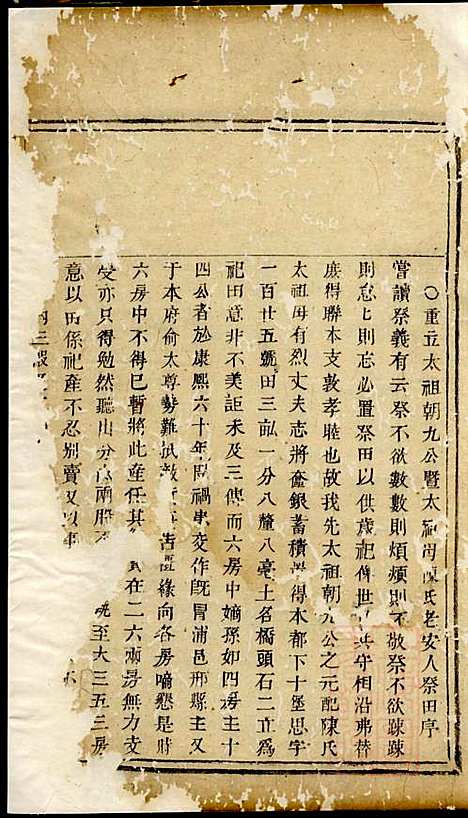 ○重立太祖朝九公暨太祖母陳氏老安人祭田序
嘗讀祭義有云祭不欲數數則煩煩則不敬祭不欲踈踈
則怠怠則忘必置祭田以供歲祀俾世世共守相沿弗替
庶得聯本支敦孝睦也故我先太祖朝九公之元配陳氏
太祖母有烈丈夫志將奩銀蓄積置得本都下十堡思字
一百廿五號田三畆一分八釐八毫土名橋頭石二立爲
祀田意非不美詎未及三傳而六房中嫡孫如四房主十
四公者於康熙六十年間禍事交作旣冒浦邑邢縣主又
于本府俞太尊勢難抵敵緣向各房哃懇是時
六房中不得已暫將此産任其在二六兩房無力支
受亦只得勉然聽山分兩股至大三五三房
意以田係祀産不忍别賣又以事
三